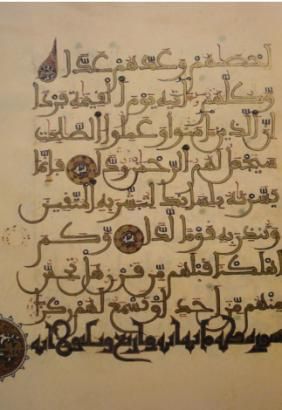 لقد احصيهم وعدهم عدا
وكلهم اتيه يوم القيمة فردا
ان الذين امنوا وعملوا الصلحت
سيجعل لهم الرحمن ودا فانما
يسرنه بلسانك لتبشر به المتقين
وتنذر به قوما لدا وكم
اهلكنا قبلهم من قرن هل تحس
منهم من احد او تسمع لهم ركزا
سورة طه مايه ايه واربع وثلثون ايه